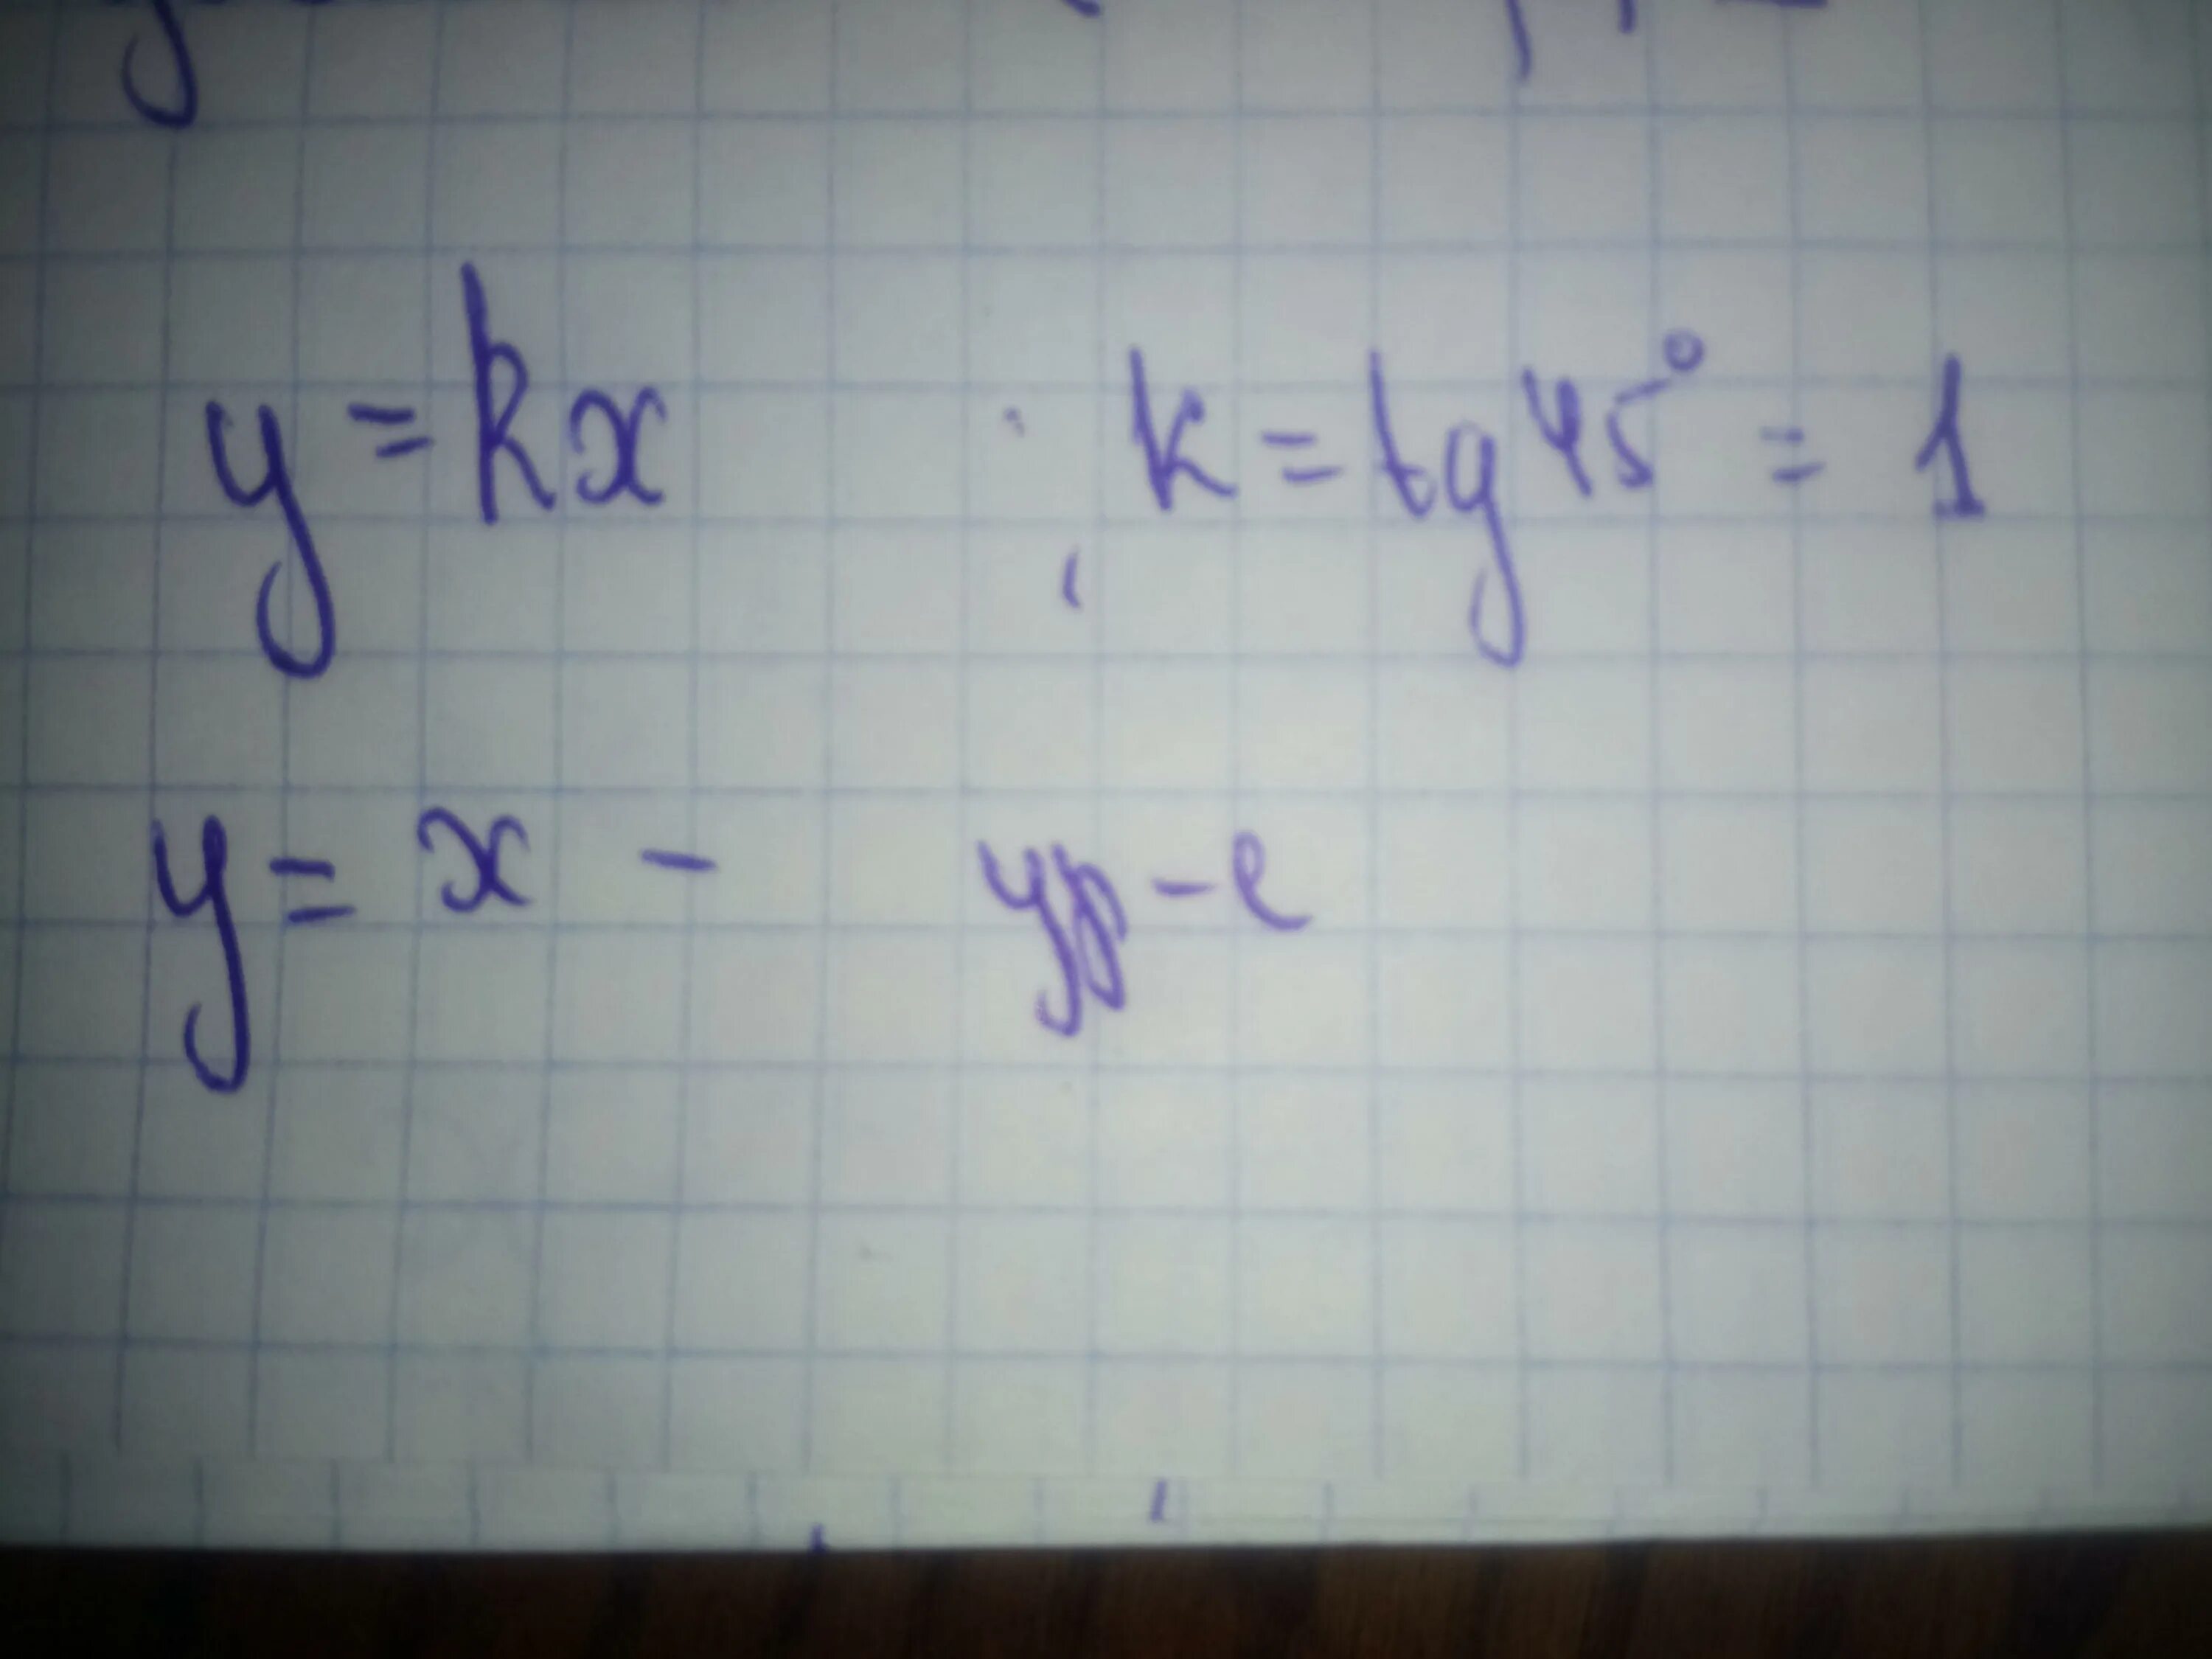 y = kx k = tg 45° = 1
y = x - ур-е